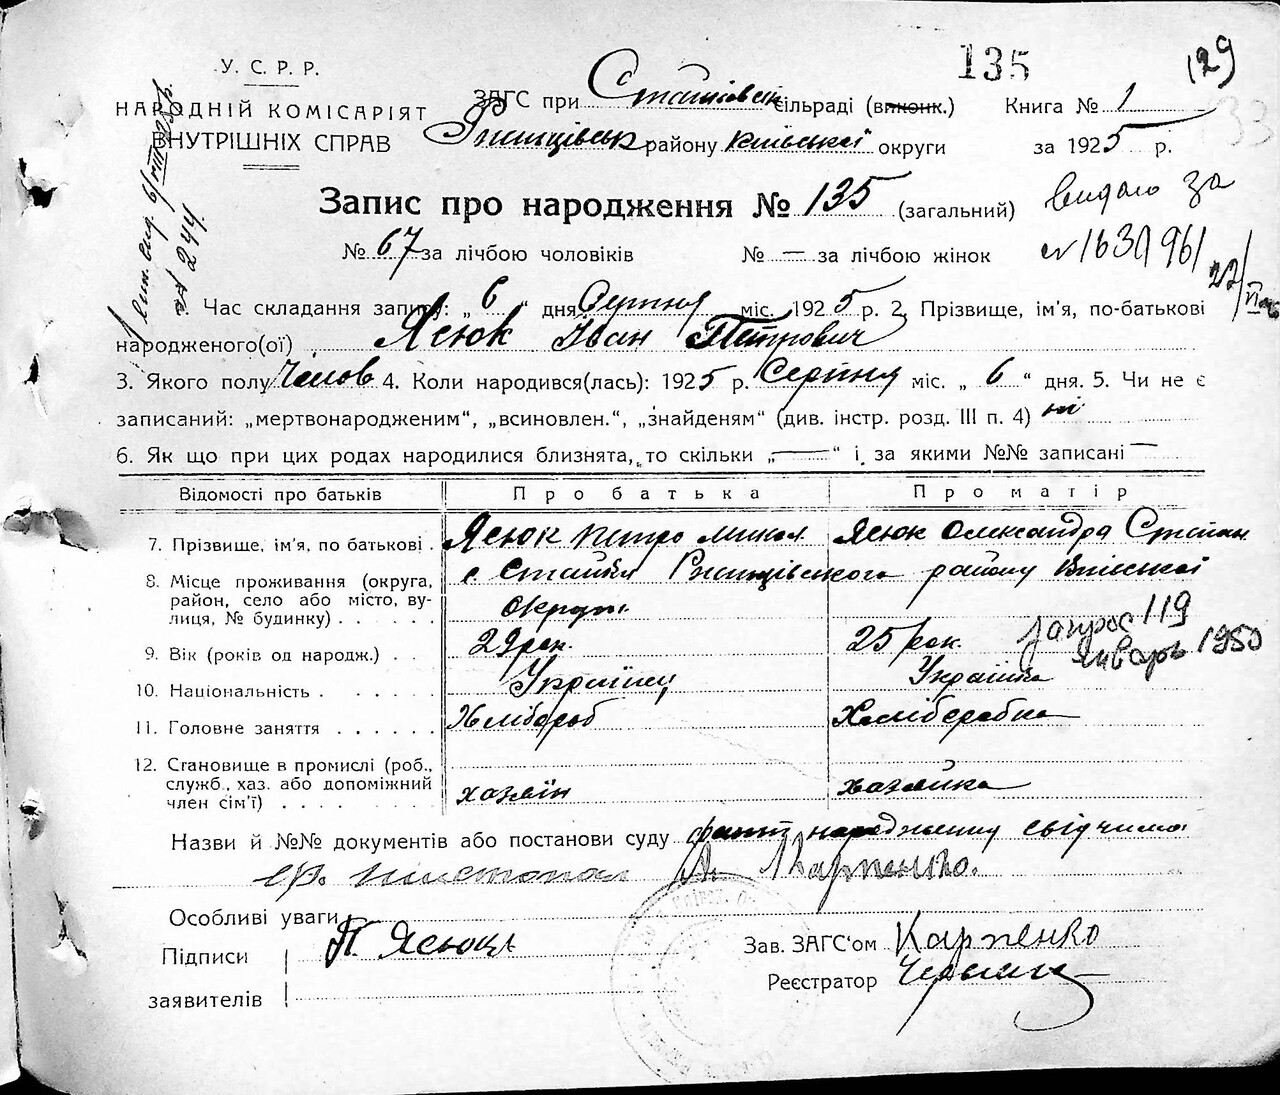 135
129
33
У. С. Р. Р.
НАРОДНІЙ КОМІСАРІЯТ
ВНУТРІШНІХ СПРАВ
ЗАГС при Стайківськ сільраді (виконк.) Книга № 1
Ржищівськ району Київської округи за 1925 р.
Запис про народження № 135 (загальний)
видано за
№ 67 за лічбою чоловіків № — за лічбою жінок
Час складання запису: „ 6 “ дня Серпня міс. 1925 р. 2. Прізвище, ім'я, по-батькові
народженого(ої) Ясюк Іван Петрович
3. Якого полу Чолов 4. Коли народився(лась): 1925 р. Серпня міс. „ 6 “ дня. 5. Чи не є
записаний: „мертвонародженим“, „всиновлен.“, „знайденям“ (див. інстр. розд. III п. 4) ні
6. Як що при цих родах народилися близнята, то скільки „ — “ і за якими №№ записані —
Відомості про батьків Про батька Про матір
7. Прізвище, ім'я, по батькові . Ясюк Петро Микол Ясюк Олександра Степан
8. Місце проживання (округа, с Стайки Ржищівського району Київської
район, село або місто, ву- округи
лиця, № будинку) . . . . .
запрос 119
январь 1950
9. Вік (років од народж.) . 29 рок. 25 рок.
10. Національність . . . . . Українец Українка
11. Головне заняття . . . . . . Хлібороб Хліборобка
12. Становище в промислі (роб.,
служб., хаз. або допоміжний хазяїн хазяйка
член сім'ї) . . . .
Назви й №№ документів або постанови суду факт народженну свідчимо
Карпенко.
Особливі уваги
Підписи П. Ясюць Зав. ЗАГС'ом Карпенко
заявителів Реєстратор